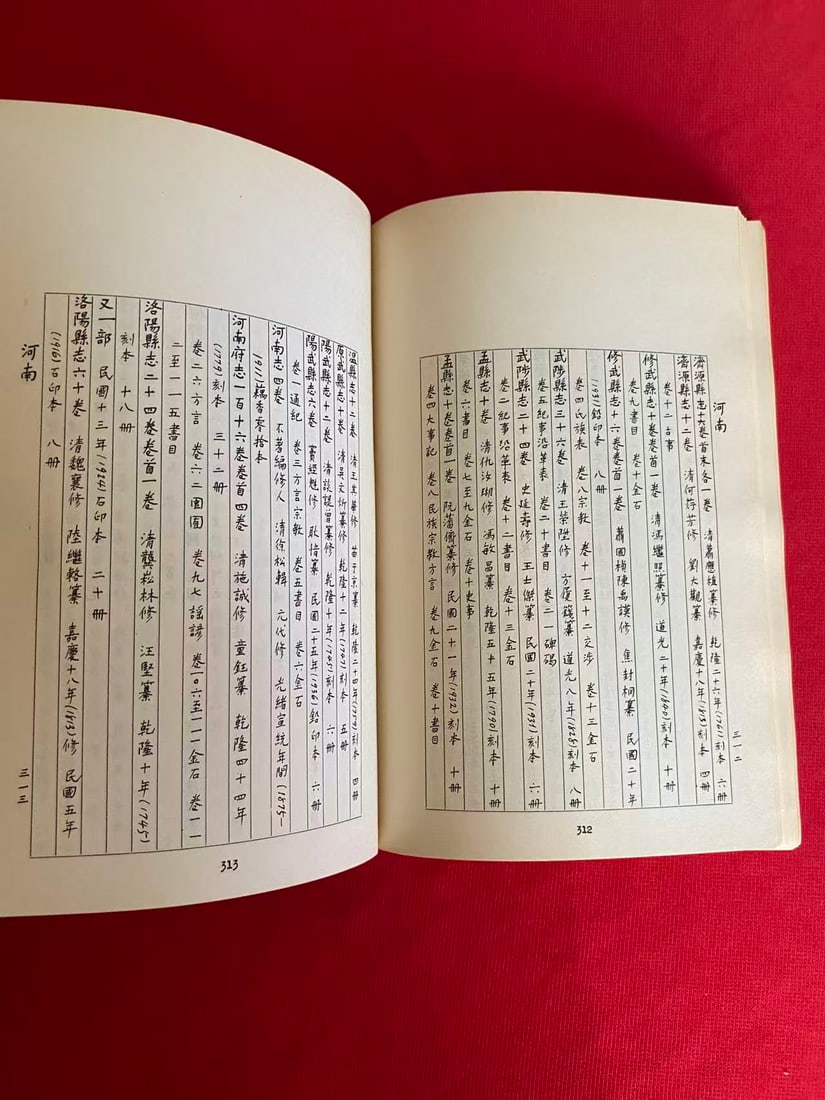 河南
三一二
濟源縣志十六卷首末各一卷 清蕭應植纂修 乾隆二十六年(1761)刻本 六冊
濟源縣志十二卷 清何荇芳修 劉大觀纂 嘉慶十八年(1813)刻本 四冊
卷十二古事
修武縣志十卷卷首一卷 清馮繼照纂修 道光二十年(1840)刻本 十冊
卷九書目 卷十金石
修武縣志十六卷卷首一卷 蕭國楨陳禹謨修 焦封桐纂 民國二十年
(1931)鉛印本 八冊
卷四民族表 卷八宗教 卷十一至十二交涉 卷十三金石
武陟縣志三十六卷 清王榮陞修 方履籛纂 道光八年(1828)刻本 八冊
卷五紀事沿革表 卷二十書目 卷二一碑碣
武陟縣志二十四卷 史延壽修 王士傑纂 民國二十年(1931)刻本 六冊
卷二紀事沿革表 卷十二書目 卷十三金石
孟縣志十卷 清仇汝瑚修 馮敏昌纂 乾隆五十五年(1790)刻本 十冊
卷六書目 卷七至九金石 卷十史事
孟縣志十卷卷首一卷 阮藩儕纂修 民國二十一年(1932)刻本 十冊
卷四大事記 卷八民族宗教方言 卷九金石 卷十書目
312
溫縣志十二卷 清王其華修 苗于京纂 乾隆二十四年(1759)刻本 四冊
原武縣志十卷 清吳文炘纂修 乾隆十二年(1747)刻本 五冊
陽武縣志十二卷 清談諟曾纂修 乾隆十年(1745)刻本 六冊
陽武縣志六卷 竇經魁修 耿愔纂 民國二十五年(1936)鉛印本 六冊
卷一通紀 卷三方言宗教 卷五書目 卷六金石
河南志四卷 不著編修人 清徐松輯 元代修 光緒宣統年間(1875—
1911)藕香零拾本
河南府志一百十六卷卷首四卷 清施誠修 童鈺纂 乾隆四十四年
(1779)刻本 三十二冊
卷二六方言 卷六二園囿 卷九七謠諺 卷一〇六至一一一金石 卷一一
二至一一五書目
洛陽縣志二十四卷卷首一卷 清龔崧林修 汪堅纂 乾隆十年(1745)
刻本 十八冊
又一部 民國十三年(1924)石印本 二十冊
洛陽縣志六十卷 清魏襄修 陸繼輅纂 嘉慶十八年(1813)修 民國五年
(1916)石印本 八冊
河南
三一三
313